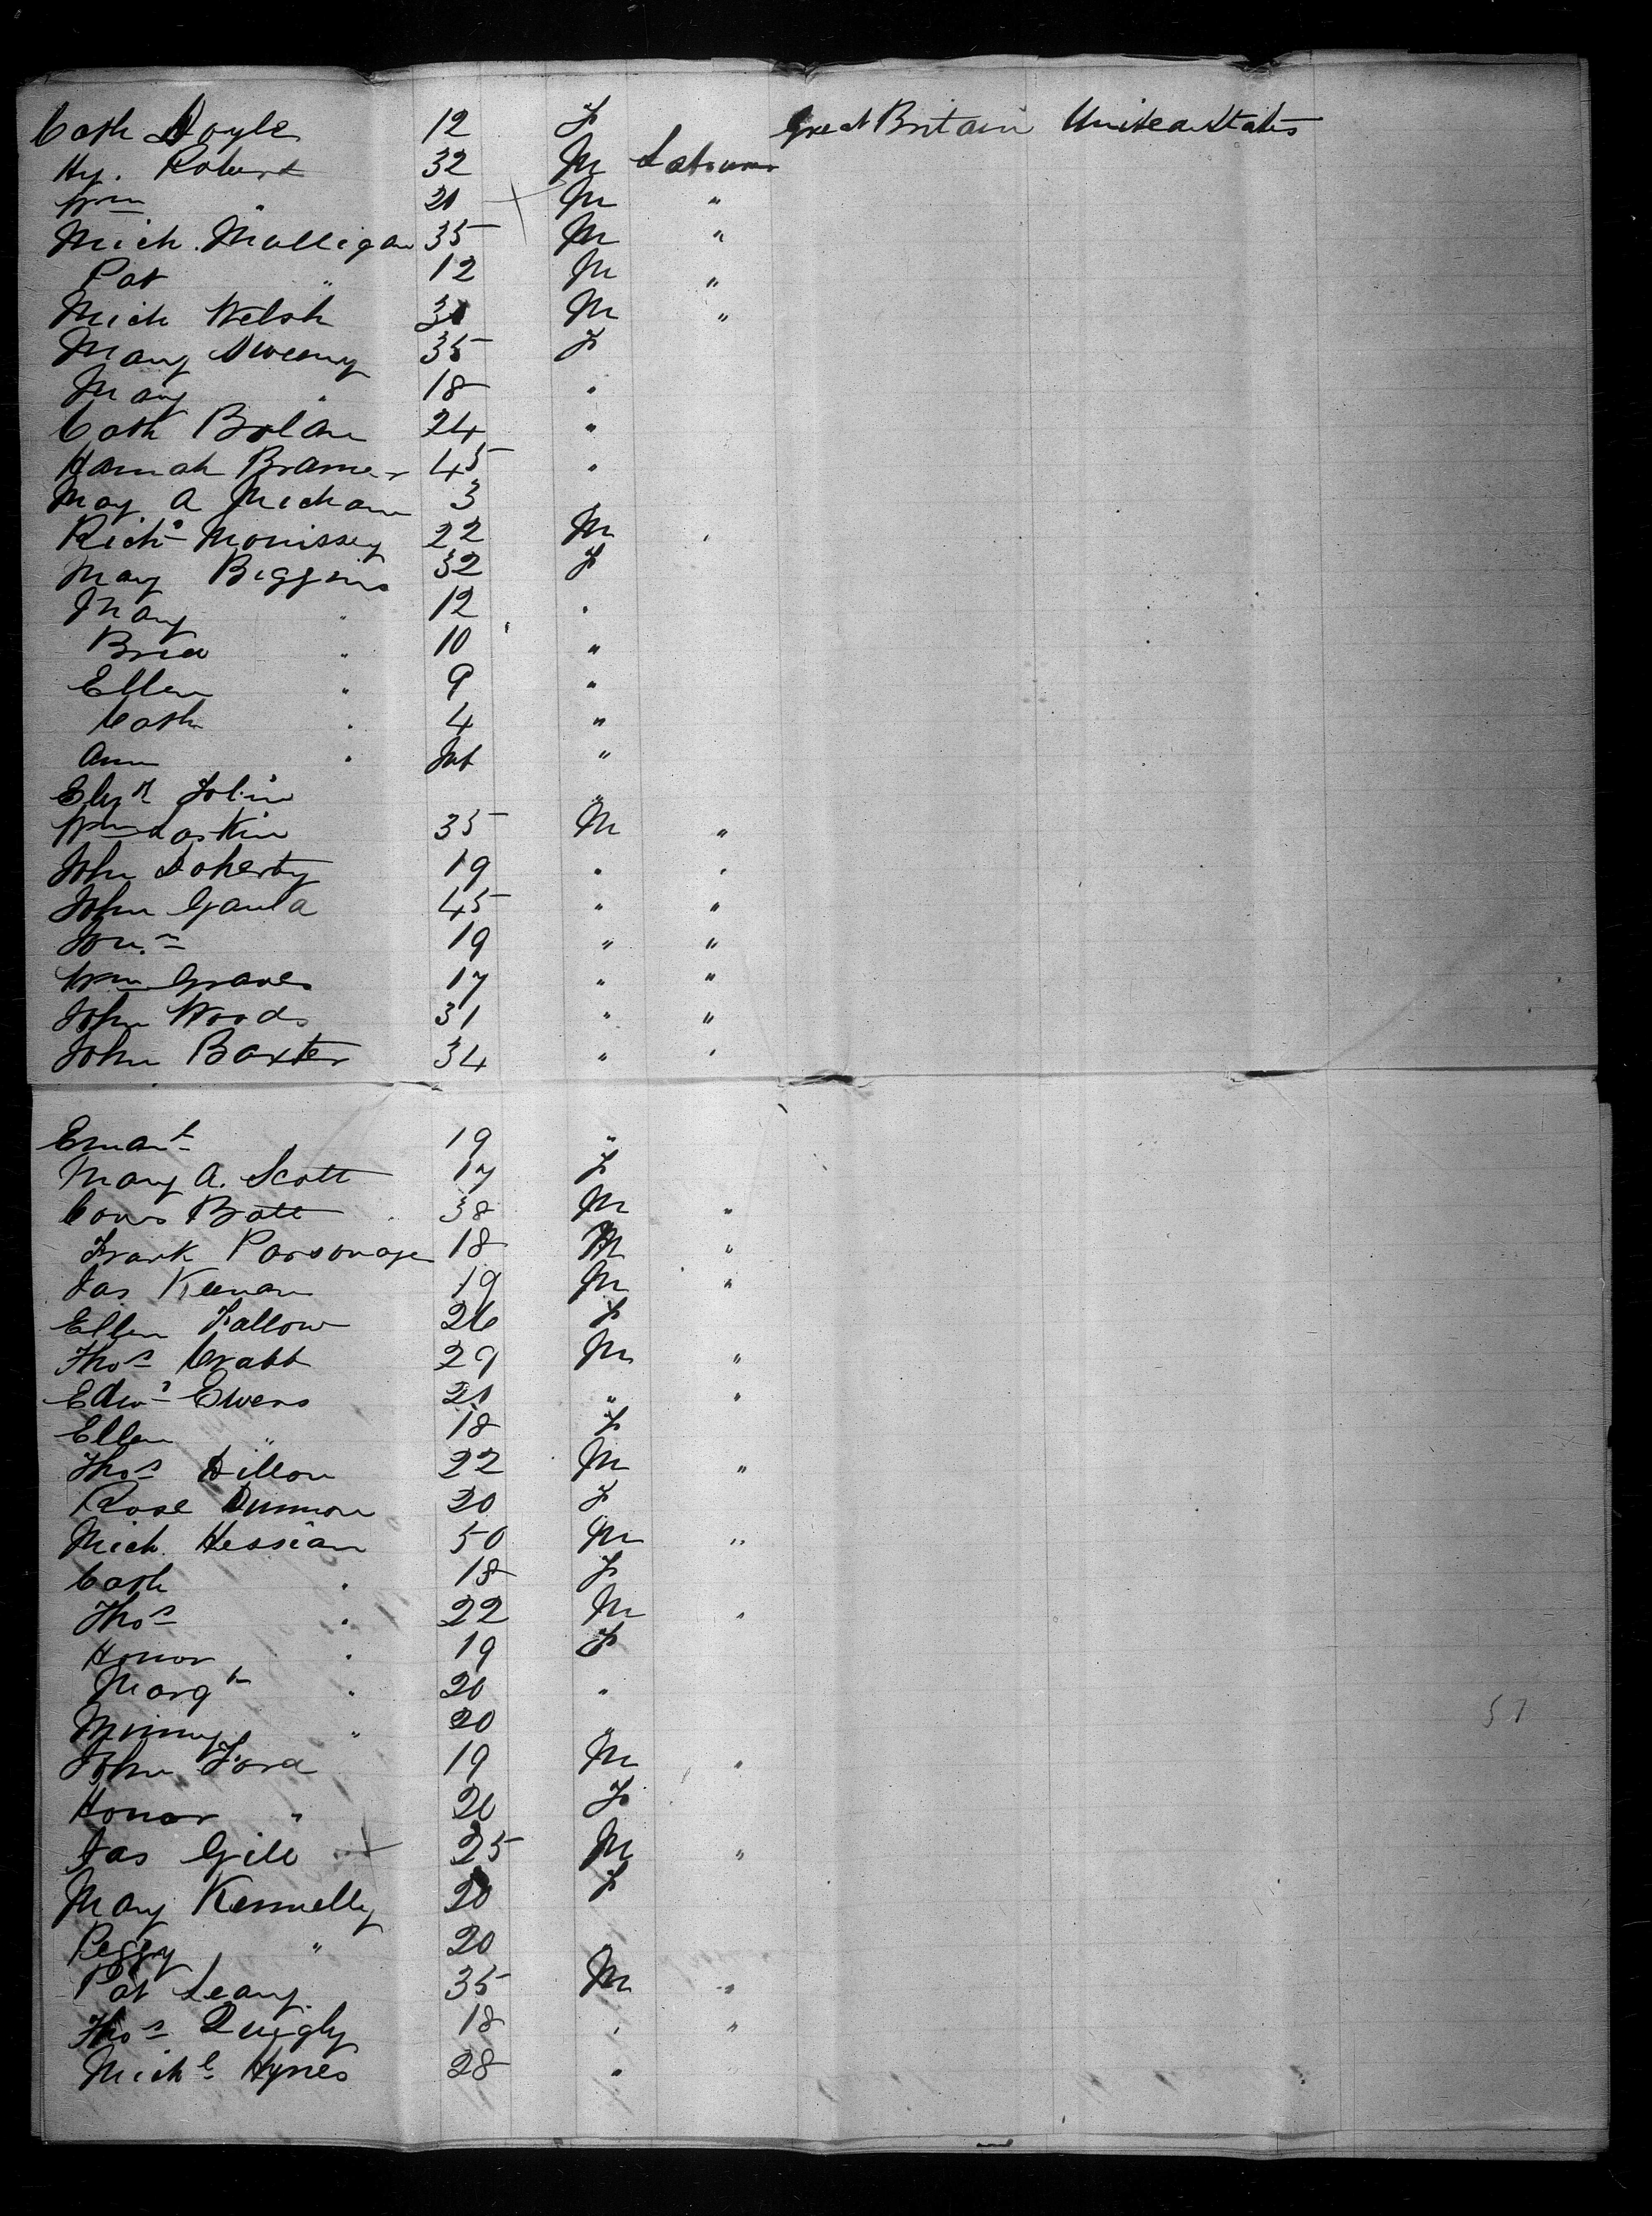 Cath Doyle 12 F Great Britain United States
Hy. Robert 32 M Labourer
Wm " 21 M "
Mich. Mulligan 35 M "
Pat " 12 M "
Mich Welsh 30 M "
Mary Sweeny 35 F
Mary " 18 "
Cath Bolan 24 "
Hannah Bramer 45 "
May A Mechan 3
Richd Morrissey 22 M "
Mary Biggins 32 F
Mary " 12 "
Brid " 10 "
Ellen " 9 "
Cath " 4 "
Ann " Inf "
Elizth Tobin "
Wm Laskin 35 M "
John Doherty 19 " "
John Gauld 45 " "
Jon. 19 " "
Wm Graves 17 " "
John Woods 31 " "
John Baxter 34 " "
Eman 19 "
Mary A. Scott 17 F
Batt 38 M "
Frank Parsonage 18 M "
Jas Keenan 19 M "
Ellen Fallow 26 F
Thos Crabb 29 M "
Edwd Ewens 21 " "
Ellen " 18 F
Thos Dillon 22 M "
Rose Dunnon 20 F
Mich. Hessian 50 M "
Cath " 18 F
Thos " 22 M "
Honor " 19 F
Margt " 20 "
Minny " 20 "
John Ford 19 M "
Honor " 20 F
Jas Gill 25 M "
Mary Kennelly 20 F
Peggy " 20 "
Pat Leary 35 M "
Thos Quigly 18 " "
Michl Hynes 28 "